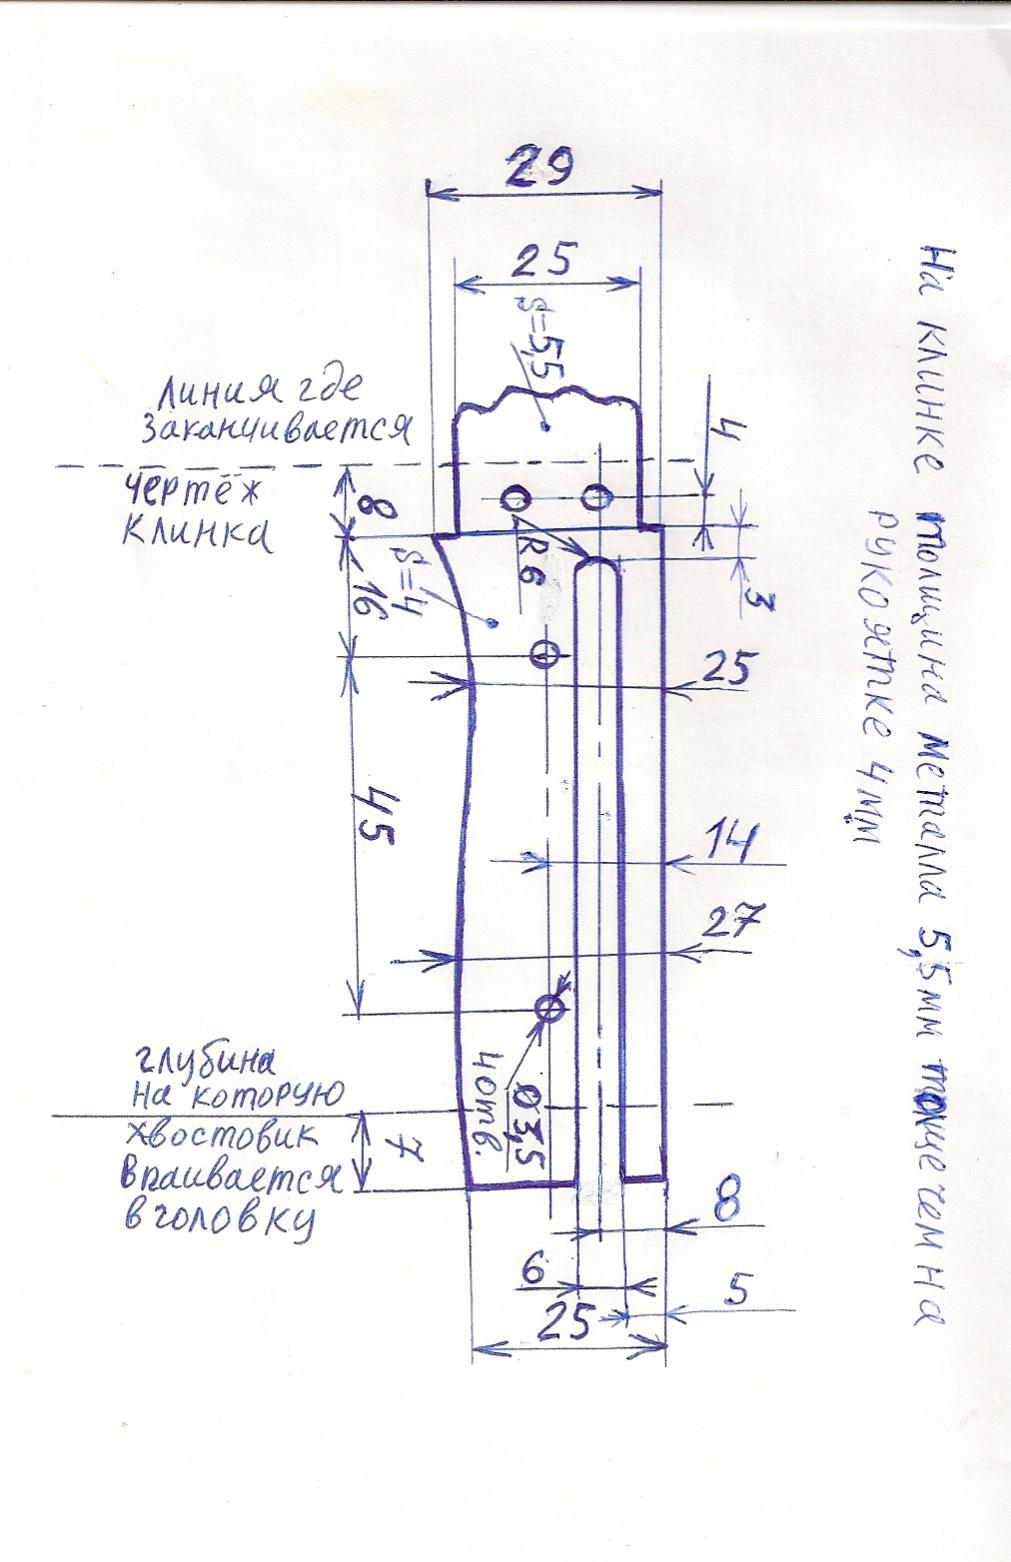 29
25
S=5,5
На клинке толщина металла 5,5мм толще чем на
рукоятке 4мм
линия где
заканчивается
чертёж
клинка
4
8
3
R6
S=4
16
25
45
14
27
глубина
на которую
хвостовик
впаивается
в головку
7
4отв.
Ø3,5
8
6
5
25